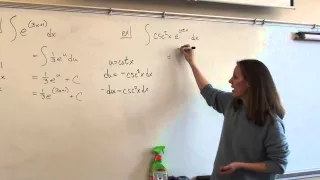 ∫ e^(3x+1) dx
= ∫ 1/3 e^u du
= 1/3 e^u + C
= 1/3 e^(3x+1) + C
ex] ∫ csc²x e^cotx dx
=
u = cotx
du = -csc²x dx
-du = csc²x dx